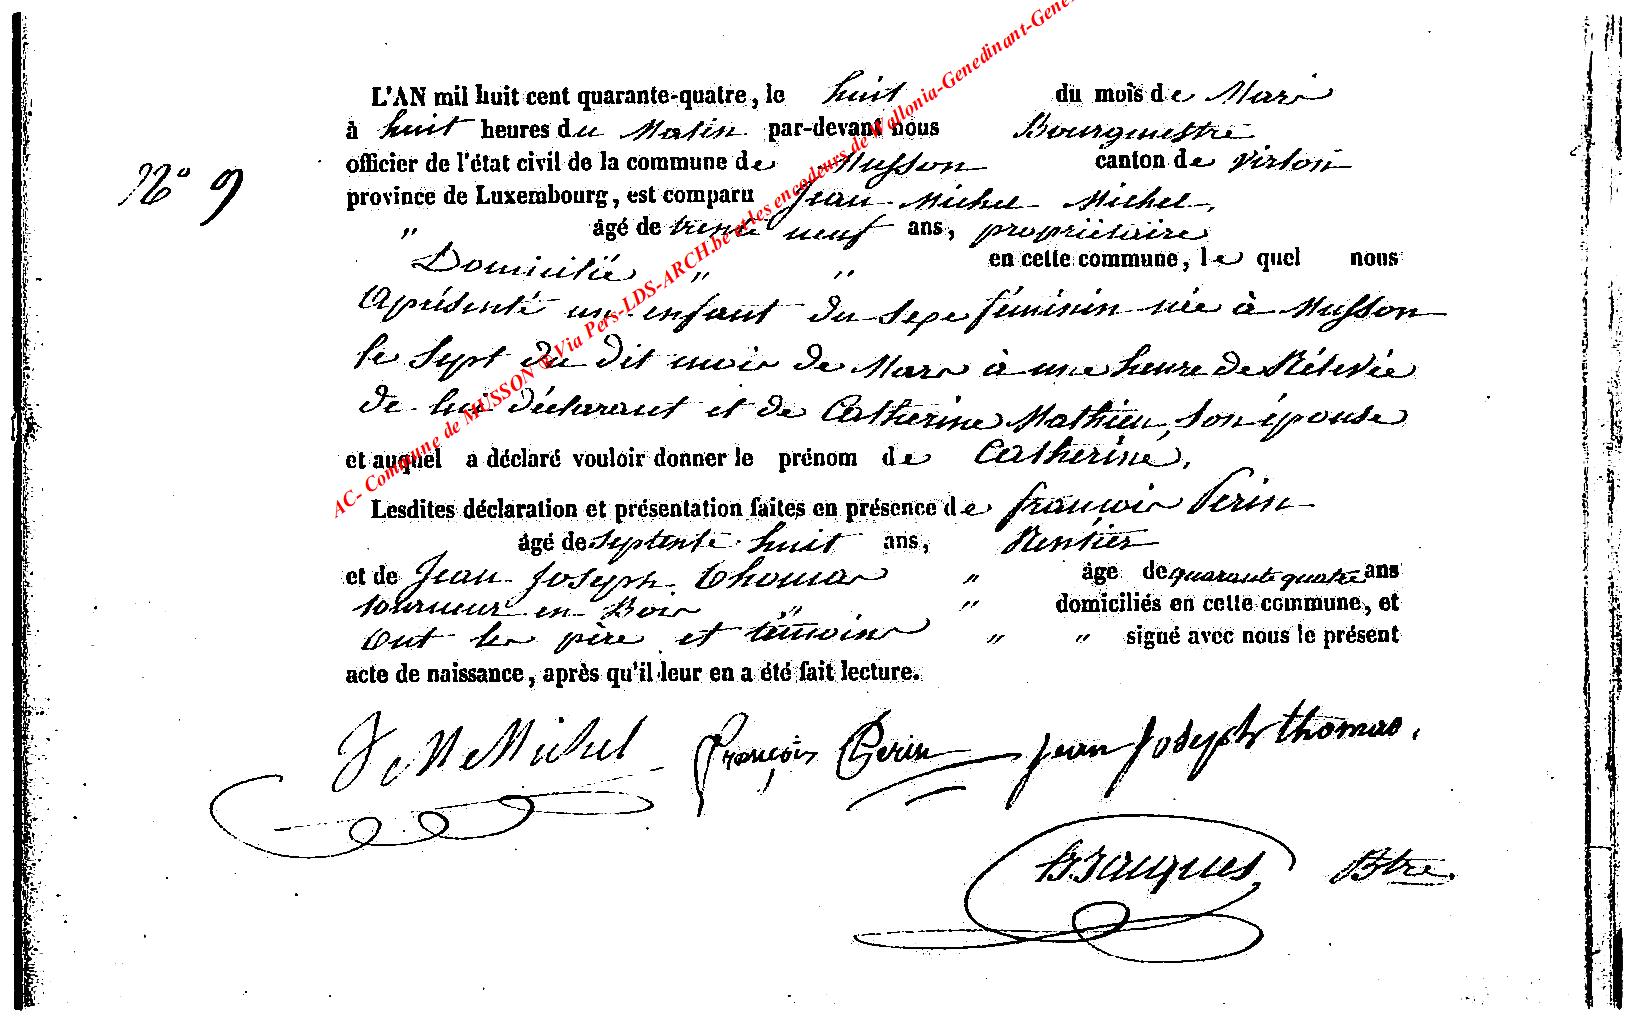 L'AN mil huit cent quarante-quatre, le huit du mois de Mars
à huit heures du Matin par-devant nous Bourgmestre
officier de l'état civil de la commune de Musson canton de Virton
N° 9
province de Luxembourg, est comparu Jean Michel Michel,
" âgé de trente neuf ans, propriétaire
Domicilié " " en cette commune, le quel nous
a présenté un enfant du sexe féminin née à Musson
le sept du dit mois de Mars à une heure de Rélevée
de lui déclarant et de Catherine Mathieu, son épouse
et auquel a déclaré vouloir donner le prénom de Catherine.
Lesdites déclaration et présentation faites en présence de françois Perin
âgé de septente huit ans, Rentier
et de Jean Joseph Thomas " âge de quarante quatre ans
tourneur en Bois " " domiciliés en cette commune, et
ont les père et témoins " " signé avec nous le présent
acte de naissance, après qu'il leur en a été fait lecture.
Michel François Perin Jean Joseph thomas.
Jacques Btre
AC- Commune de MUSSON Via Pers-LDS-ARCH.be et les encodeurs de Wallonia-Genedinant-Gene